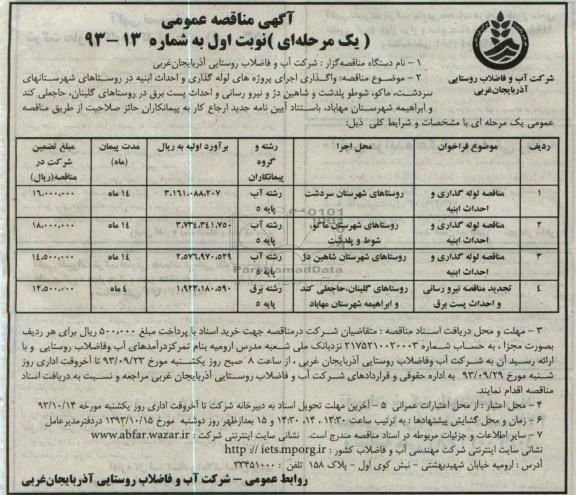 آگهی مناقصه عمومی
( یک مرحله‌ای ) نوبت اول به شماره ۱۳-۹۳
شرکت آب و فاضلاب روستایی
آذربایجان‌غربی
۱ - نام دستگاه مناقصه‌گزار : شرکت آب و فاضلاب روستایی آذربایجان‌غربی
۲ - موضوع مناقصه: واگذاری اجرای پروژه های لوله گذاری و احداث ابنیه در روستاهای شهرستانهای
سردشت، ماکو، شوطو پلدشت و شاهین دژ و نیرو رسانی و احداث پست برق در روستاهای گلینان، حاجعلی کند
و ابراهیمه شهرستان مهاباد، باستناد آیین نامه جدید ارجاع کار به پیمانکاران حائز صلاحیت از طریق مناقصه
عمومی یک مرحله ای با مشخصات و شرایط کلی ذیل:
ردیف موضوع فراخوان محل اجرا رشته و گروه پیمانکاران برآورد اولیه به ریال مدت پیمان (ماه) مبلغ تضمین شرکت در مناقصه(ریال)
۱ مناقصه لوله گذاری و احداث ابنیه روستاهای شهرستان سردشت رشته آب پایه ۵ ۳،۱۶۱،۰۸۸،۲۰۷ ۱۴ ماه ۱۶،۰۰۰،۰۰۰
۲ مناقصه لوله گذاری و احداث ابنیه روستاهای شهرستان ماکو، شوط و پلدشت رشته آب پایه ۵ ۳،۷۳۴،۳۴۱،۷۵۰ ۱۴ ماه ۱۸،۰۰۰،۰۰۰
۳ مناقصه لوله گذاری و احداث ابنیه روستاهای شهرستان شاهین دژ رشته آب پایه ۵ ۲،۵۷۹،۹۷۰،۵۲۹ ۱۴ ماه ۱۴،۵۰۰،۰۰۰
۴ تجدید مناقصه نیرو رسانی و احداث پست برق روستاهای گلینان،حاجعلی کند و ابراهیمه شهرستان مهاباد رشته برق پایه ۵ ۱،۹۲۳،۱۸۰،۵۹۰ ۴ ماه ۱۲،۵۰۰،۰۰۰
ParsNamadData
۳ - مهلت و محل دریافت اسناد مناقصه : متقاضیان شرکت درمناقصه جهت خرید اسناد با پرداخت مبلغ ۵۰۰،۰۰۰ ریال برای هر ردیف
بصورت مجزا ، به حساب شماره ۲۱۷۵۲۱۰۰۲۰۰۰۳ نزدبانک ملی شعبه مدرس ارومیه بنام تمرکزدرآمدهای آب وفاضلاب روستایی و با
ارائه رسید آن به شرکت آب وفاضلاب روستایی آذربایجان غربی ، از ساعت ۸ صبح روز یکشنبه مورخ ۹۳/۰۹/۲۳ تا آخروقت اداری روز
شنبه مورخ ۹۳/۰۹/۲۹ به اداره حقوقی و قراردادهای شرکت آب و فاضلاب روستایی آذربایجان غربی مراجعه و نسبت به دریافت اسناد
مناقصه اقدام نمایند.
۴ - محل اعتبار : از محل اعتبارات عمرانی ۵ - آخرین مهلت تحویل اسناد به دبیرخانه شرکت تا آخروقت اداری روز یکشنبه مورخه ۹۳/۱۰/۱۴
۶ - زمان و محل گشایش پیشنهادها : به ترتیب ساعت ۱۳:۳۰ ، ۱۴، ۱۴:۳۰ و ۱۵ بعدازظهر روز دوشنبه مورخ ۱۳۹۳/۱۰/۱۵ دردفترمدیرعامل
۷ - سایر اطلاعات و جزئیات مربوطه در اسناد مناقصه مندرج است. نشانی سایت اینترنتی شرکت : www.abfar.wazar.ir
نشانی سایت اینترنتی شرکت مهندسی آب و فاضلاب کشور : http :// iets.mporg.ir
آدرس : ارومیه خیابان شهیدبهشتی - نبش کوی اول - پلاک ۱۵۸ تلفن : ۳۳۴۵۱۰۰۰
روابط عمومی – شرکت آب و فاضلاب روستایی آذربایجان‌غربی